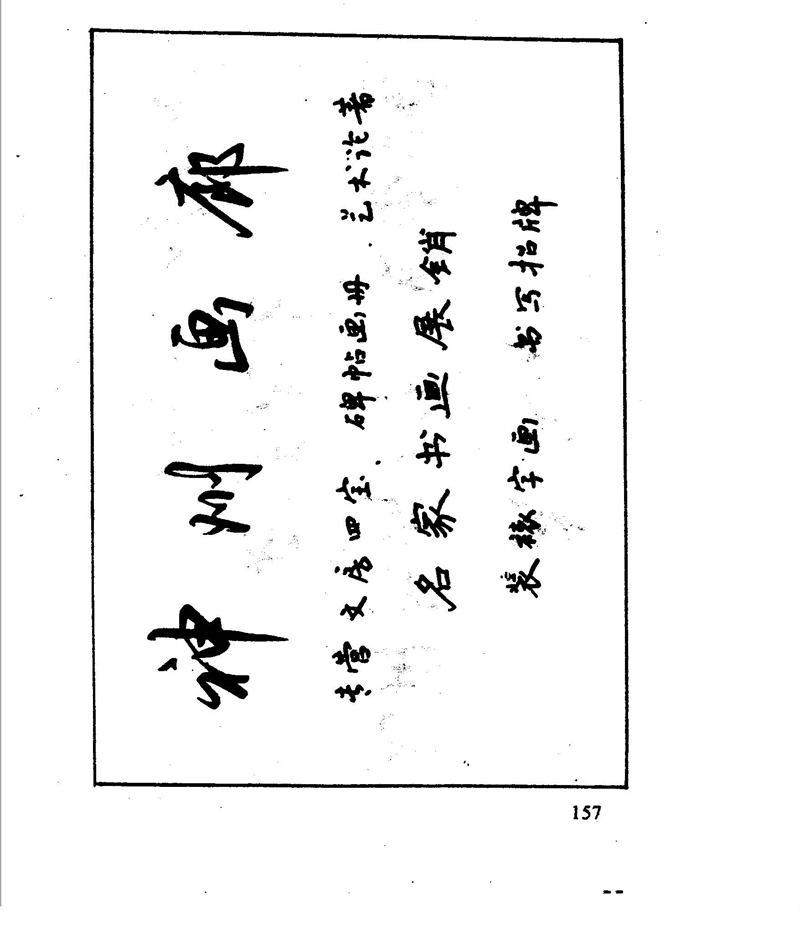 神州画廊
专营文房四宝、碑帖画册、艺术论著
名家书画展销
装裱字画 书写招牌
157